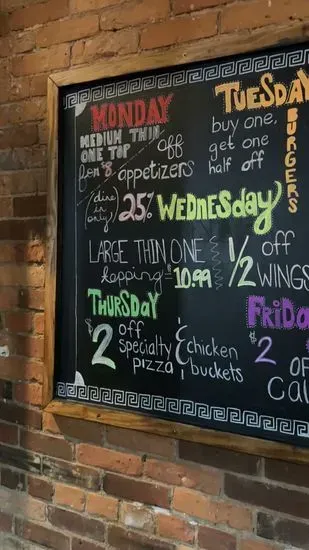 MONDAY
MEDIUM THIN
ONE TOP
for $8
(dine in only)
25% off
appetizers
TUESDAY
buy one,
get one
half off
BURGERS
WEDNESday
LARGE THIN ONE
topping $10.99
1/2 off
WINGS
THURSDAY
$2 off
specialty
pizza
& chicken
buckets
FRIDA
$2